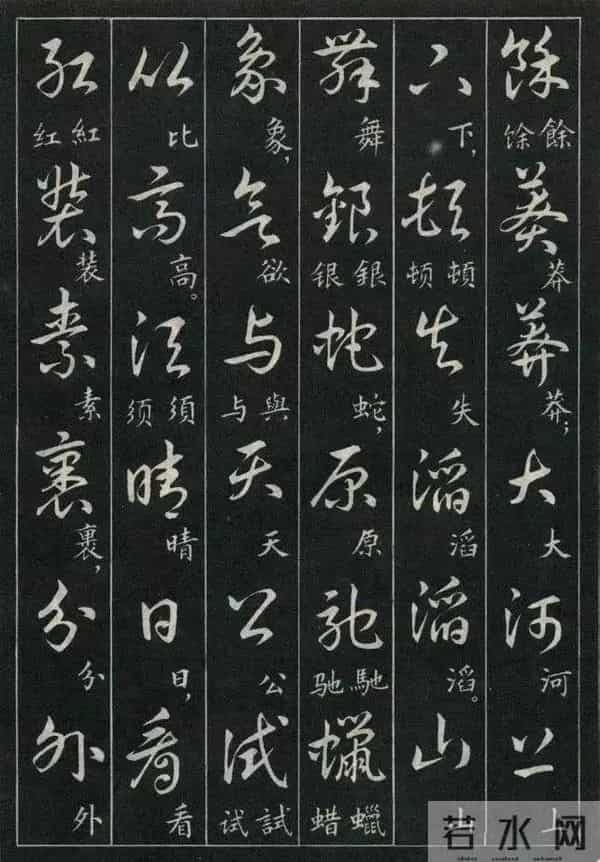 餘馀餘莽莽莽莽；大大河河上上
下下，頓顿頓失失滔滔滔滔。山山
舞舞銀银銀蛇蛇，原原馳驰馳蠟蜡蠟
象象，欲欲与与與天天公公試试試
比比高高。須须須晴晴日日，看看
紅红紅装装素素裹裹，分分外外
若水网